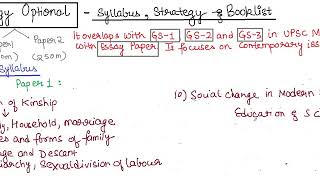 gy Optional - Syllabus, Strategy & Booklist
Paper 2
(250m)
It overlaps with GS-1 GS-2 and GS-3 in UPSC M
with Essay Paper. It focuses on Contemporary iss
Syllabus
Paper 1:
n of Kinship
y, Household, marriage
es and forms of family
age and Descent
iarchy, Sexual division of labour
10) Social change in Modern S
Education & Sci